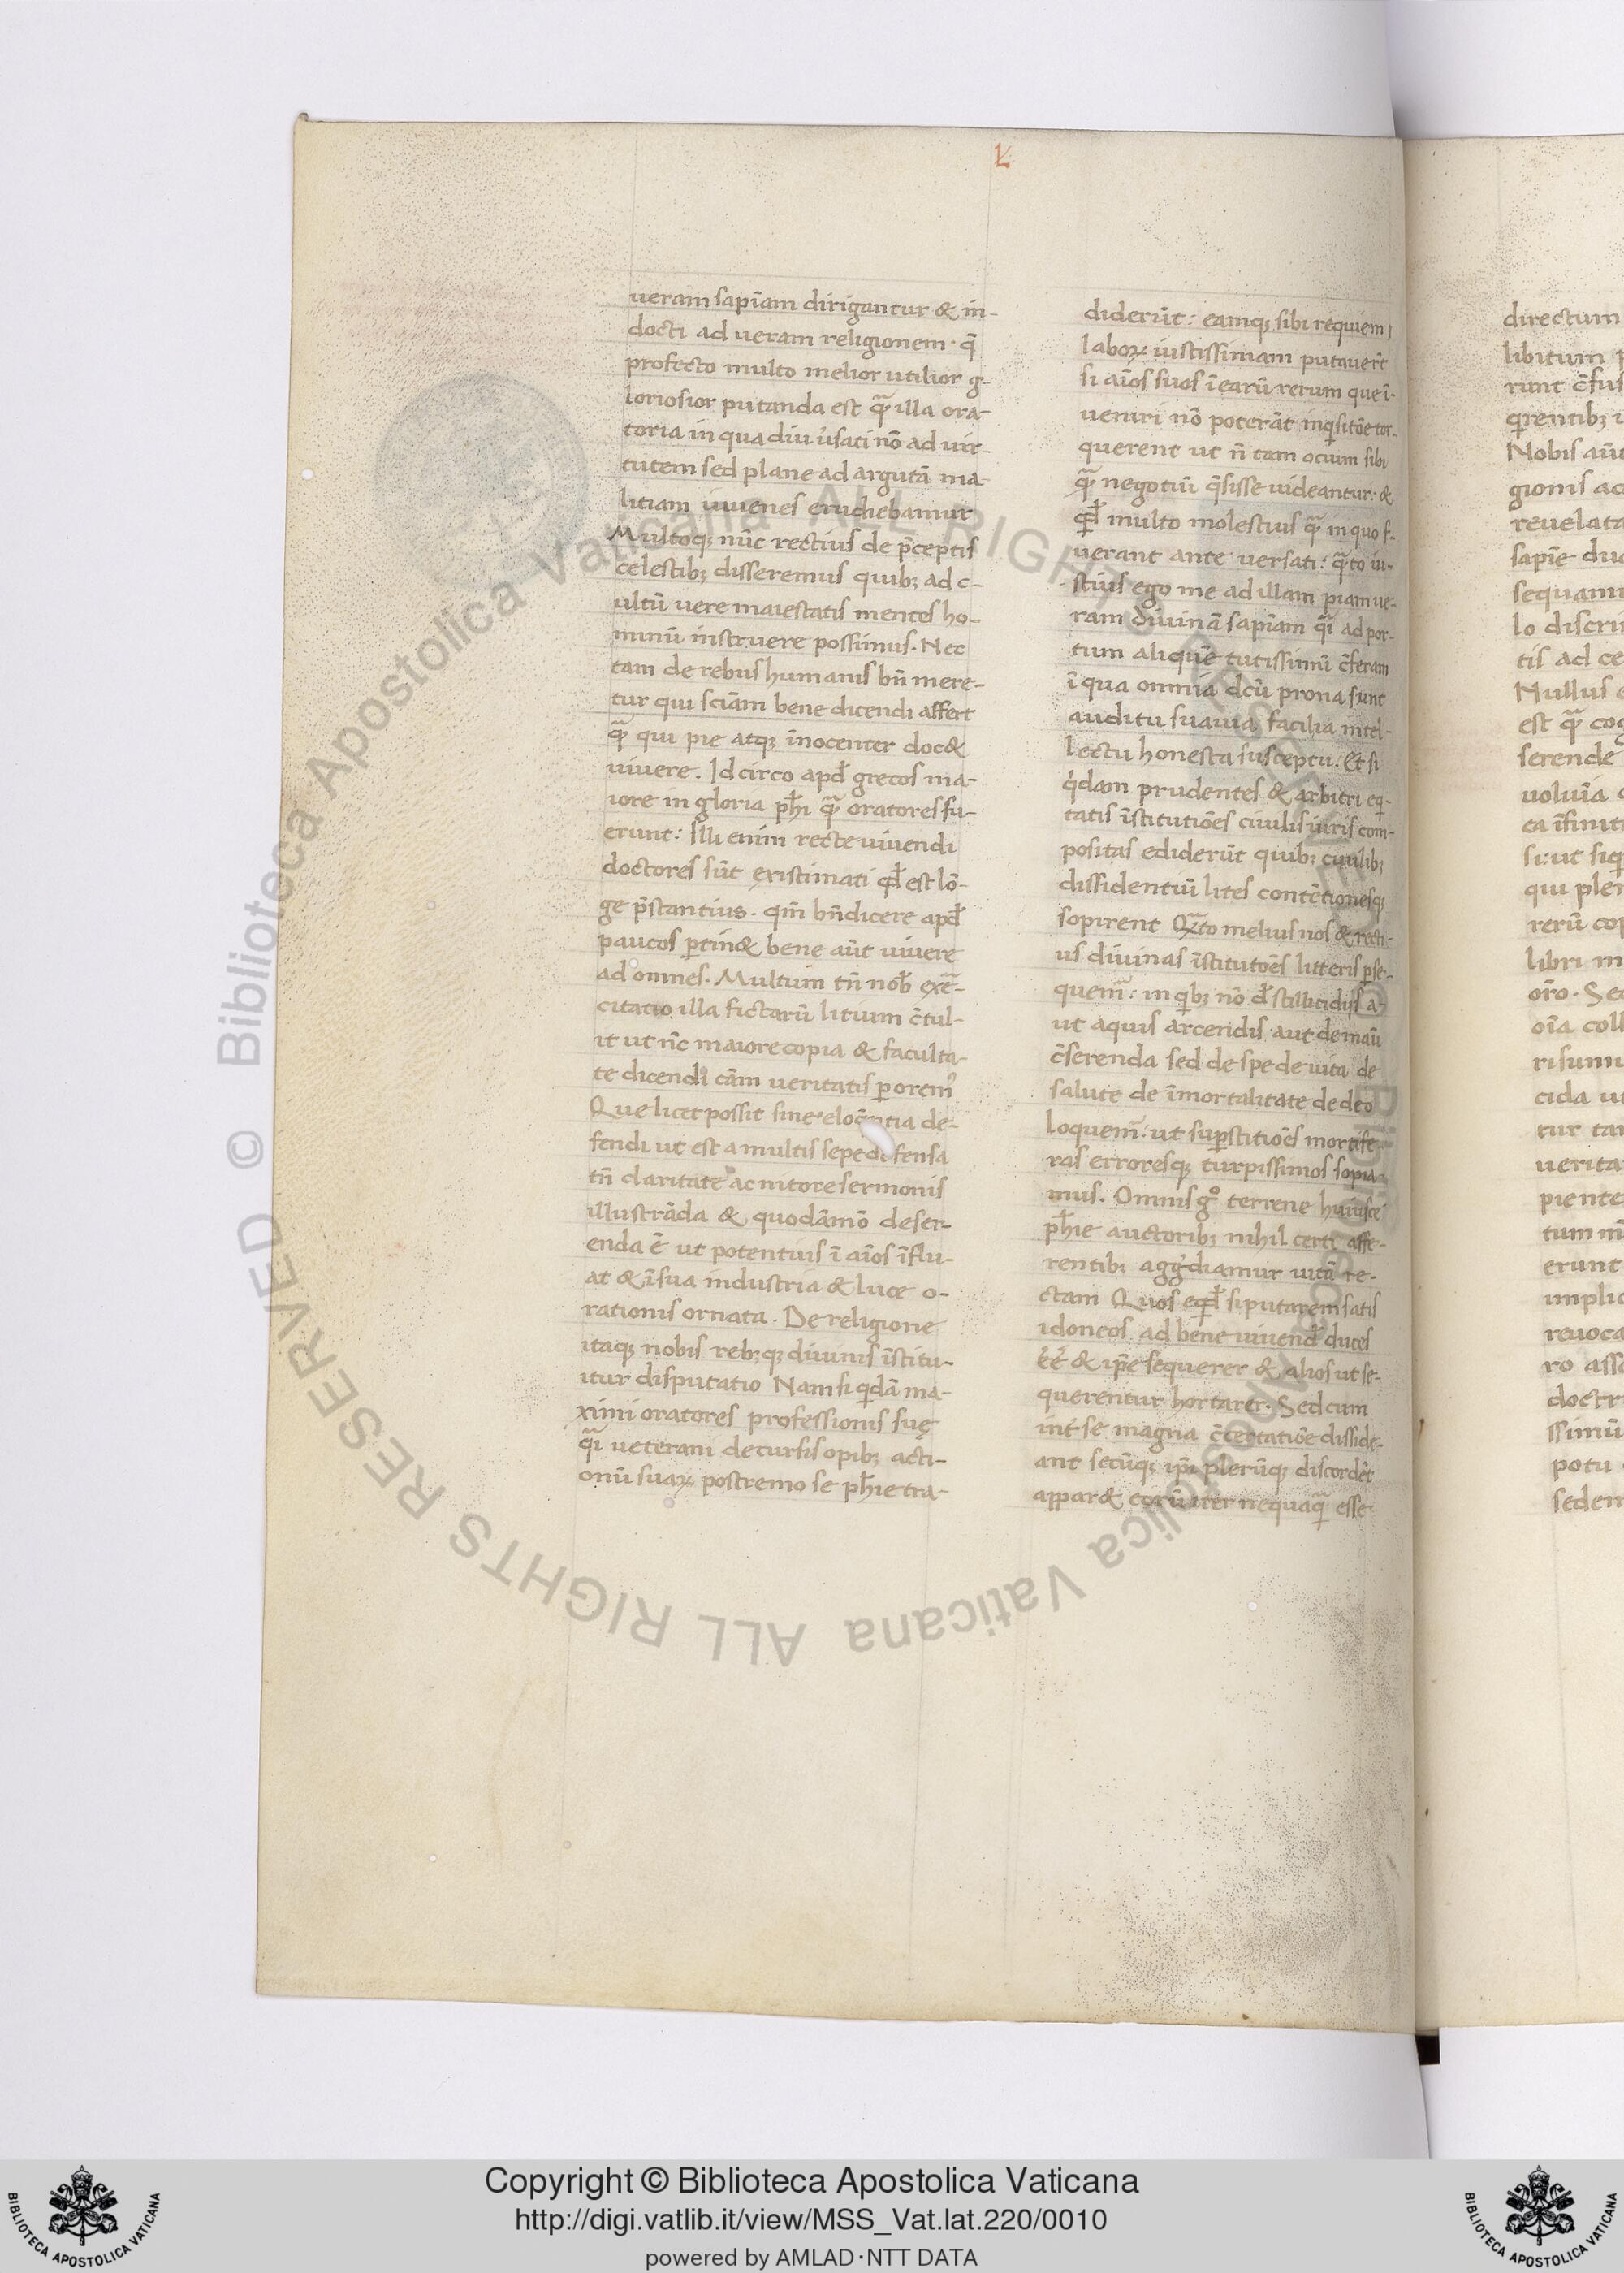 L
ueram sapīam dirigantur & in-
docti ad ueram religionem · q̄
profecto multo melior utilior g-
loriosior putanda est q̄ illa ora-
toria in qua diu u̓sati nō ad uir-
tutem sed plane ad argutā ma-
litiam iuuenes erudiebamur
Multoq; nūc rectius de p̄ceptis
celestib; disseremus quib; ad c-
ultū uere maiestatis mentes ho-
minū instruere possimus. Nec
tam de rebus humanis bn̄ mere-
tur qui sciām bene dicendi affert
q̄ qui pie atq; īnocenter doc&
uiuere. Idcirco apd̓ grecos ma-
iore in gloria ph̄i q̄ oratores fu-
erunt: Illi enim recte uiuendi
doctores sūt existimati qd̓ est lō-
ge p̄stantius. qm̄ bn̄ dicere apd̓
paucos ꝑtin& bene aūt uiuere
ad omnes. Multum tn̄ nob̓ exc̄-
citatio illa fictarū litium c̄tul-
it ut nc̄ maiore copia & faculta-
te dicendi cām ueritatis ꝑorem̓
Que licet possit sine eloq̄ntia de-
fendi ut est a multis sepe defensa
tn̄ claritate ac nitore sermonis
illustrāda & quodāmō deser-
enda ē ut potentius ī aīos īflu-
at & ī sua industria & luce o-
rationis ornata. De religione
itaq; nobis reb; q; diuinis īstitu-
itur disputatio Nam si qdā ma-
ximi oratores professionis suę
q̄i ueterani decursis opib; acti-
onū suaꝝ postremo se ph̄ie tra-
diderūt: eamq; sibi requiem
laboꝝ iustissimam putauer̄t
si aīos suos ī earū rerum que ī-
ueniri nō poterāt inq̓sitōe tor-
querent ut n̄ tam ocium sibi
q̄ negotiū q̄sisse uideantur: &
qd̓ multo molestius q̄ in quo f-
uerant ante uersati: q̄to iu-
stius ego me ad illam piam ue-
ram diuinā sapīam q̄i ad por-
tum aliquē tutissimū c̄feram
ī qua omnia dcū prona sunt
auditu suauia facilia intel-
lectu honesta susceptu. Et si
q̓dam prudentes & arbitri eq-
tatis īstitutiōes ciuilis iuris com-
positas ediderūt quib; ciuilib;
dissidentiū lites contētionesq;
sopirent Q̄to melius nos & recti-
us diuinas īstitutoēs litteris ꝑse-
quem̄: in qb; nō d̓ stillicidijs a-
ut aquis arcendis aut de manū
c̄serenda sed de spe de uita de
salute de īmortalitate de deo
loquem̄: ut suꝑstitiōes mortife-
ras erroresq; turpissimos sopia-
mus. Omnis g̊ terrene huiusce
ph̄ie auctorib; nihil certi affe-
rentib; agg̓diamur uitā re-
ctam Quos eqd̓ si putarem satis
idoneos ad bene uiuend̓ duces
eē & ip̄e sequerer & alios ut se-
querentur hortarer. Sed cum
int̓ se magna c̄certatiōe disside-
ant secūq; ip̄i plerūq; discordēt
appar& eorū iter nequaq̄ esse
directum
libitum
runt c̄fus
q̄rentib;
Nobis aūt
gionis ac
reuelata
sapīe duc
sequam
lo discri
tis ad ce
Nullus
est q̄ cog
serende
uoluīa
ea īfinit
si: ut siq
qui pler
rerū cop
libri in
orō. Sed
oīa coll
ri sumu
cida ut
tur tan
ueritat
piente
tum m
erunt
implic
reuoca
ro asse
doctri
ssimū
potu
sedem
© Biblioteca Apostolica Vaticana ALL RIGHTS RESERVED
© Biblioteca Apostolica Vaticana ALL RIGHTS RESERVED
Copyright © Biblioteca Apostolica Vaticana
http://digi.vatlib.it/view/MSS_Vat.lat.220/0010
powered by AMLAD·NTT DATA
BIBLIOTECA APOSTOLICA VATICANA
BIBLIOTECA APOSTOLICA VATICANA